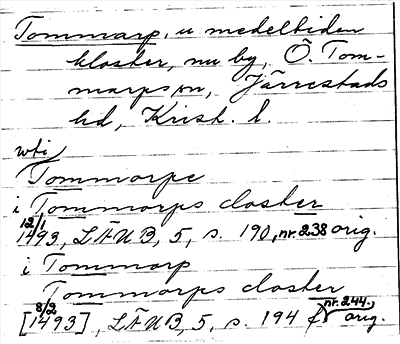 Tommarp, u medeltiden
kloster, nu by, Ö. Tom-
marps sn, Järrestads
hd, Krist. l.
Tommorpe
i Tommorps closter
12/1
1493, LÄUB, 5, s. 190, nr. 238 orig.
i Tommorp
Tommorps closter
8/2
[1493], LÄUB, 5, s. 194 nr. 244., orig.